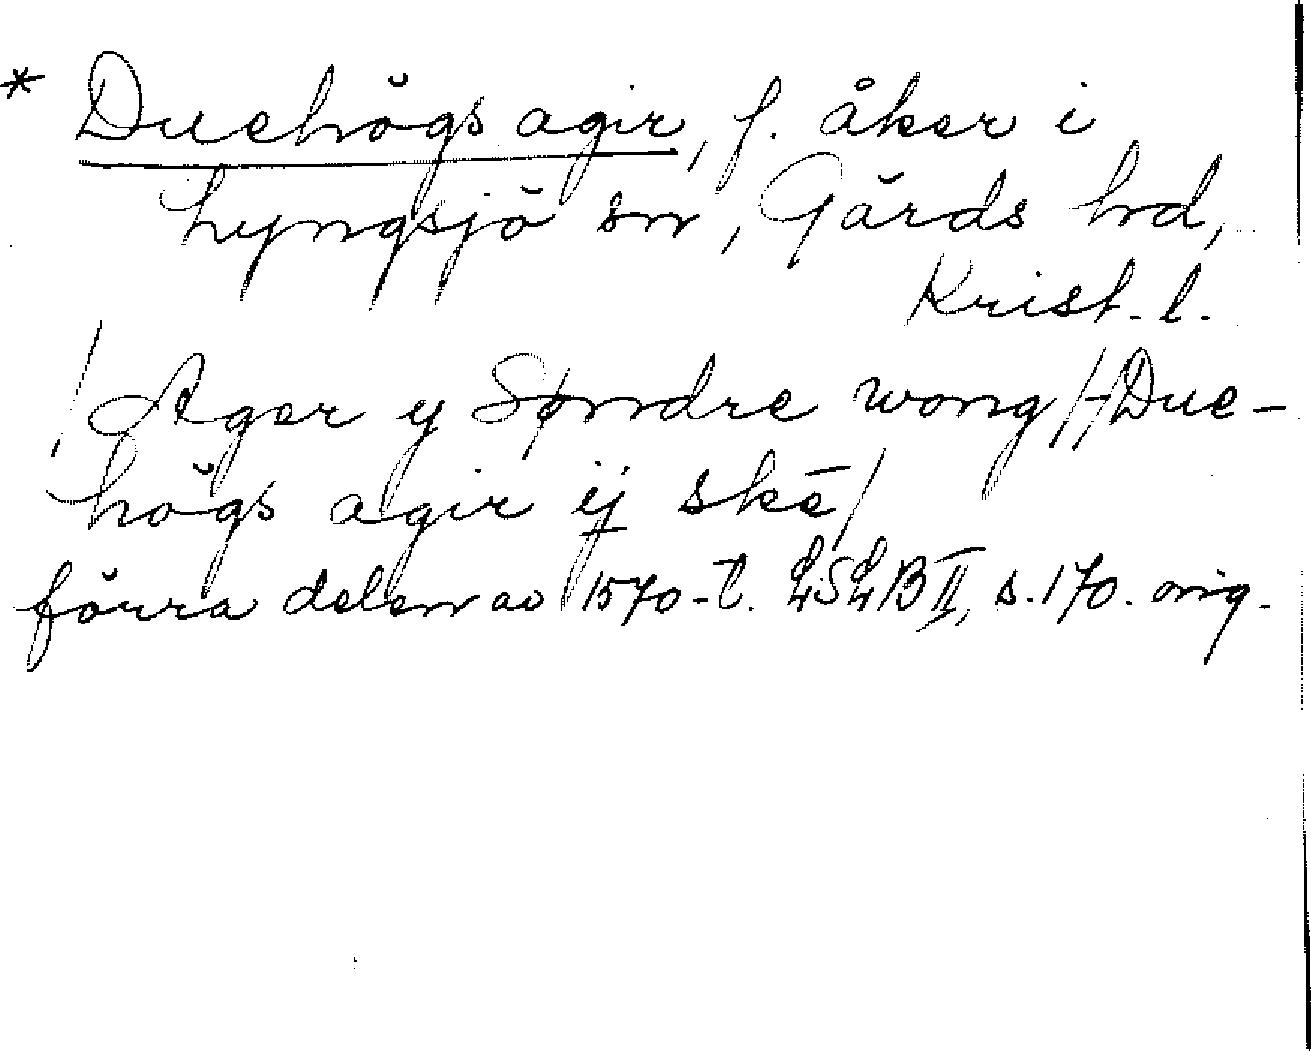 * Duehögs agir, f. åker i
Lyngsjö sn, Gärds hd,
Krist. l.
/Ager y Søndre wong/-/Due-
högs agir ij skē/
förra delen av 1570-t. LSLB II, s.170. orig.